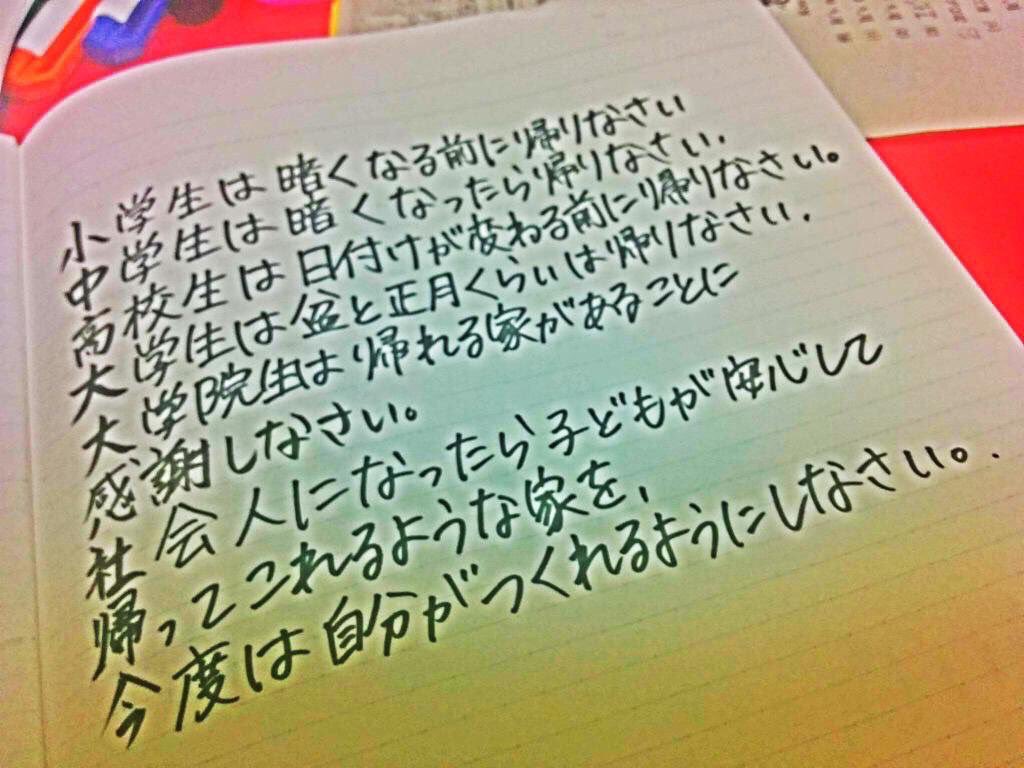 小学生は暗くなる前に帰りなさい
中学生は暗くなったら帰りなさい.
高校生は日付けが変わる前に帰りなさい。
大学生は盆と正月くらいは帰りなさい.
大学院生は帰れる家があることに
感謝しなさい。
社会人になったら子どもが安心して
帰ってこれるような家を、
今度は自分がつくれるようにしなさい。.